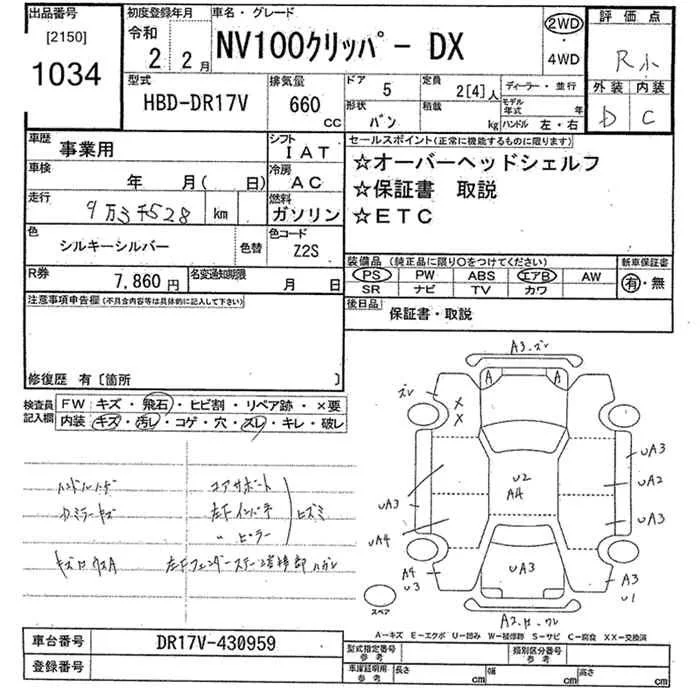 出品番号
[2150]
1034
初度登録年月
令和
2 2月
車名・グレード
NV100クリッパ゜ー DX
2WD
・
4WD
評価点
R小
外装 内装
D C
型式
HBD-DR17V
排気量
660
CC
ドア 5
形状 バン
定員 2[4]人
積載 kg
ディーラー・並行
モデル年式 年
ハンドル 左・右
車歴 事業用
シフト IAT
車検 年 月( 日)
冷房 AC
走行 9万3千528 km
燃料 ガソリン
色 シルキーシルバー 色替
色コード Z2S
R券 7,860円
名変通知期限 月 日
セールスポイント(正常に機能するものに限ります)
☆オーバーヘッドシェルフ
☆保証書 取説
☆ETC
装備品(純正品に限り○をつけてください)
新車保証書
PS PW ABS エアB AW
有・無
SR ナビ TV カワ
後日品 保証書・取説
注意事項申告欄(不具合内容等は具体的に記入して下さい)
修復歴 有〔箇所 〕
検査員記入欄
FW キズ・飛石・ヒビ割・リペア跡・×要
内装 キズ・汚レ・コゲ・穴・スレ・キレ・破レ
コアサポート
左Fインパネ
〃 ピラー
ヒズミ
A3.ズレ
A A
ズレ
X
X
UA3
U2
A4
UA2
UA3
UA3
UA4
UA3
A4
U3
A3
U1
スペア
A-キズ E-エクボ U-凹み W-補修跡 S-サビ C-腐食 XX-交換済
車台番号 DR17V-430959
登録番号
型式指定番号 参考
類別区分番号 参考
車庫証明用 参考 長さ cm 幅 cm 高さ cm